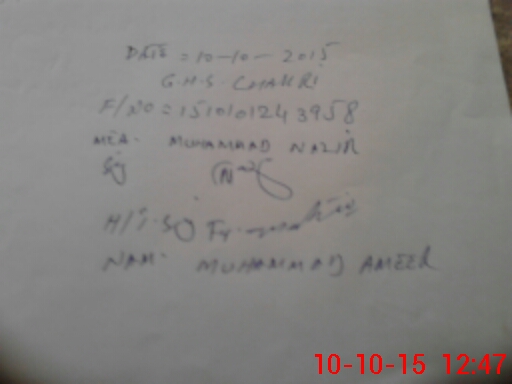 DATE = 10-10-2015
G.H.S. CHAKRI
F/NO = 151010124 3958
MEA. MUHAMMAD NAZIR
Sig
H/T. Sig
NAM. MUHAMMAD AMEER
10-10-15 12:47